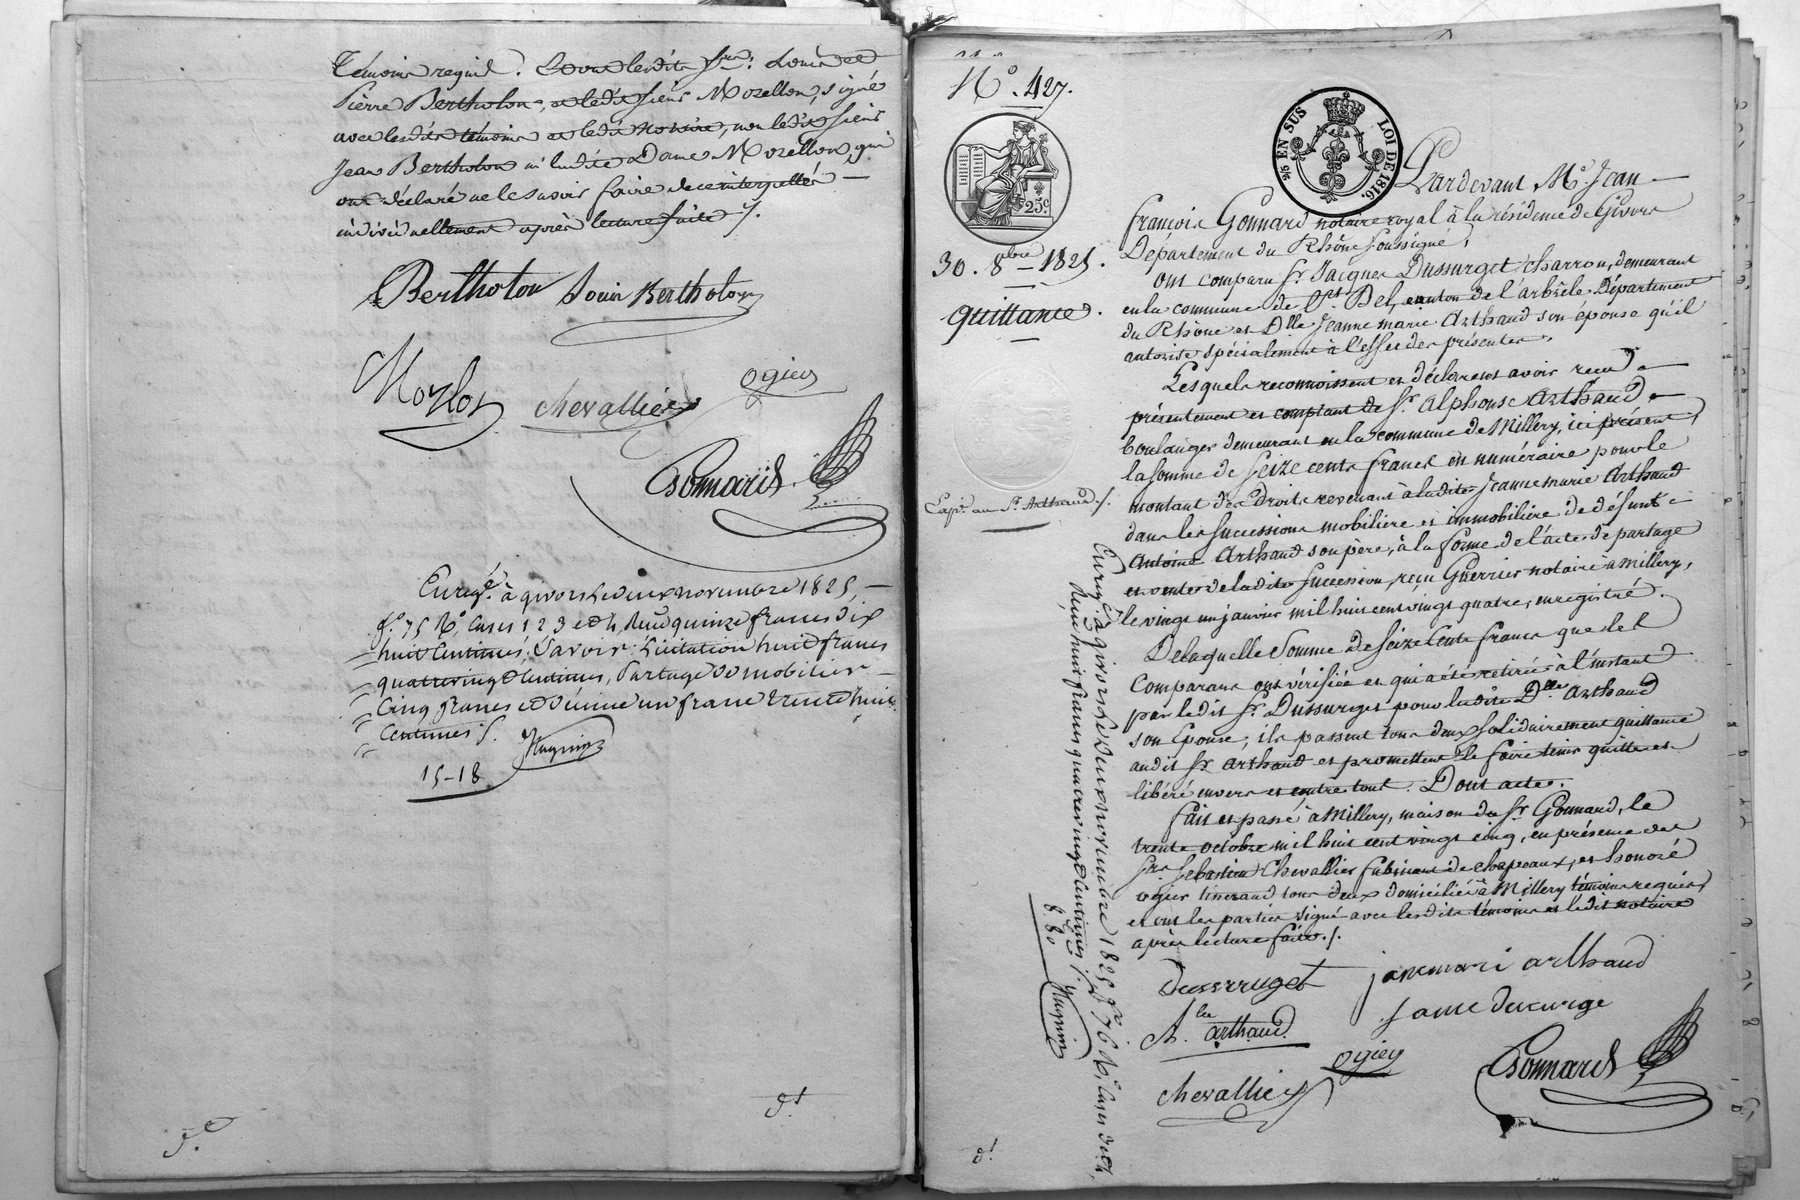 Témoins requis. Et ont lesdits srs. Louis et
Pierre Bertholon, et ledit sieur Mozellon, signé
avec lesdits témoins et ledit notaire, non ledit sieur
Jean Bertholon ni ladite Dame Mozellon, qui
ont déclaré ne le savoir faire de ce interpellés
individuellement après lecture faite ./.
Bertholon Louis Bertholon
Mozlon chevallier ogier
Gonnard
Enregé. à givors le deux novembre 1825,
fo. 75 Ro, cases 1 2 3 et 4, Reçu quinze francs dix
huit centimes; Savoir: Licitation huit francs
quatrevingt centimes, Partage de mobilier
Cinq francs et dixième un franc trente huit
Centimes ./.
15-18
No. 427.
25c.
25 EN SUS LOI DE 1816.
30. 8bre 1825.
quittance.
Expn. au Sr. Arthaud ./.
Pardevant Me. Jean
françois Gonnard notaire royal à la résidence de Givors
Département du Rhône soussigné,
Ont comparu Sr. Jacques Dussurget charron, demeurant
en la commune de St. Bel, canton de l'arbrêle Département
du Rhône et Dlle Jeanne marie Arthaud son épouse qu'il
autorise spécialement à l'effet des présentes,
Lesquels reconnoissent et déclarent avoir reçu
présentement et comptant de Sr. Alphonse Arthaud
boulanger demeurant en la commune de Millery, ici présent,
la somme de Seize cents francs en numéraire pour le
montant des Droits revenant à ladite Jeanne marie Arthaud
dans les successions mobilière et immobilière de défunt
Antoine Arthaud son père, à la forme de l'acte de partage
et vente de ladite succession, reçu Guerrier notaire à Millery,
le vingt un janvier mil huit cent vingt quatre, enregistré.
De laquelle Somme de seize Cents francs que les
Comparans ont vérifiée et qui a été retirée à l'instant
par ledit Sr. Dussurget pour ladite Dlle. Arthaud
son Epouse, ils passent tous deux solidairement quittance
audit Sr. Arthaud et promettent le faire tenir quitte et
libéré envers et contre tout. Dont acte.
fait et passé à Millery, maison du Sr. Gonnard, le
trente octobre mil huit cent vingt cinq, en présence des
Srs. Sébastien Chevallier fabricant de chapeaux, et honoré
ogier tisserand tous deux domiciliés à Millery témoins requis,
et ont les parties signé avec lesdits témoins et ledit notaire
après lecture faite ./.
Dusserruget janemari arthaud
fame ducurge
A. lse arthaud
ogier
chevallier Gonnard
Enregé. à givors le deux novembre 1825, fo. 76 Ro, Cases 3 et 4,
Reçu huit francs quatrevingt centimes ./.
8.80